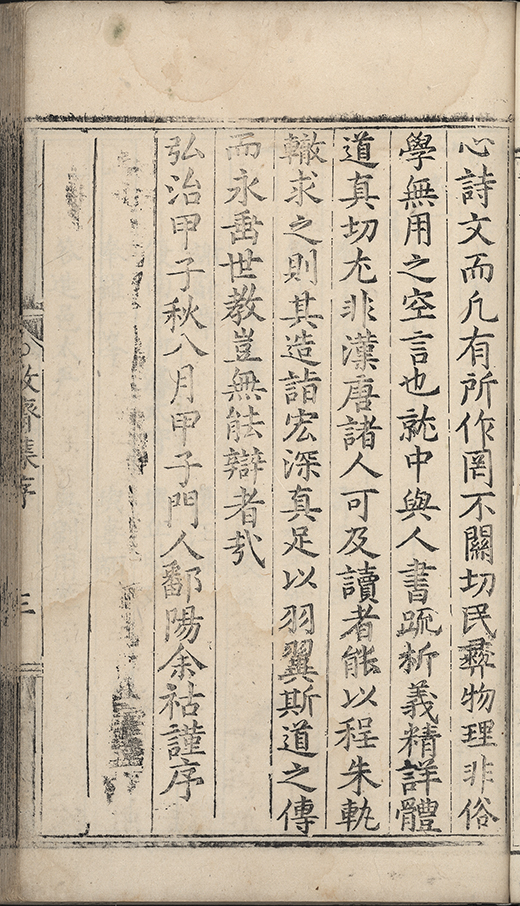 心詩文而凡有所作罔不關切民彝物理非俗
學無用之空言也就中與人書疏析義精詳體
道真切尤非漢唐諸人可及讀者能以程朱軌
轍求之則其造詣宏深真足以羽翼斯道之傳
而永垂世教豈無能辯者㢤
弘治甲子秋八月甲子門人鄱陽余祜謹序
敬齋集序
三